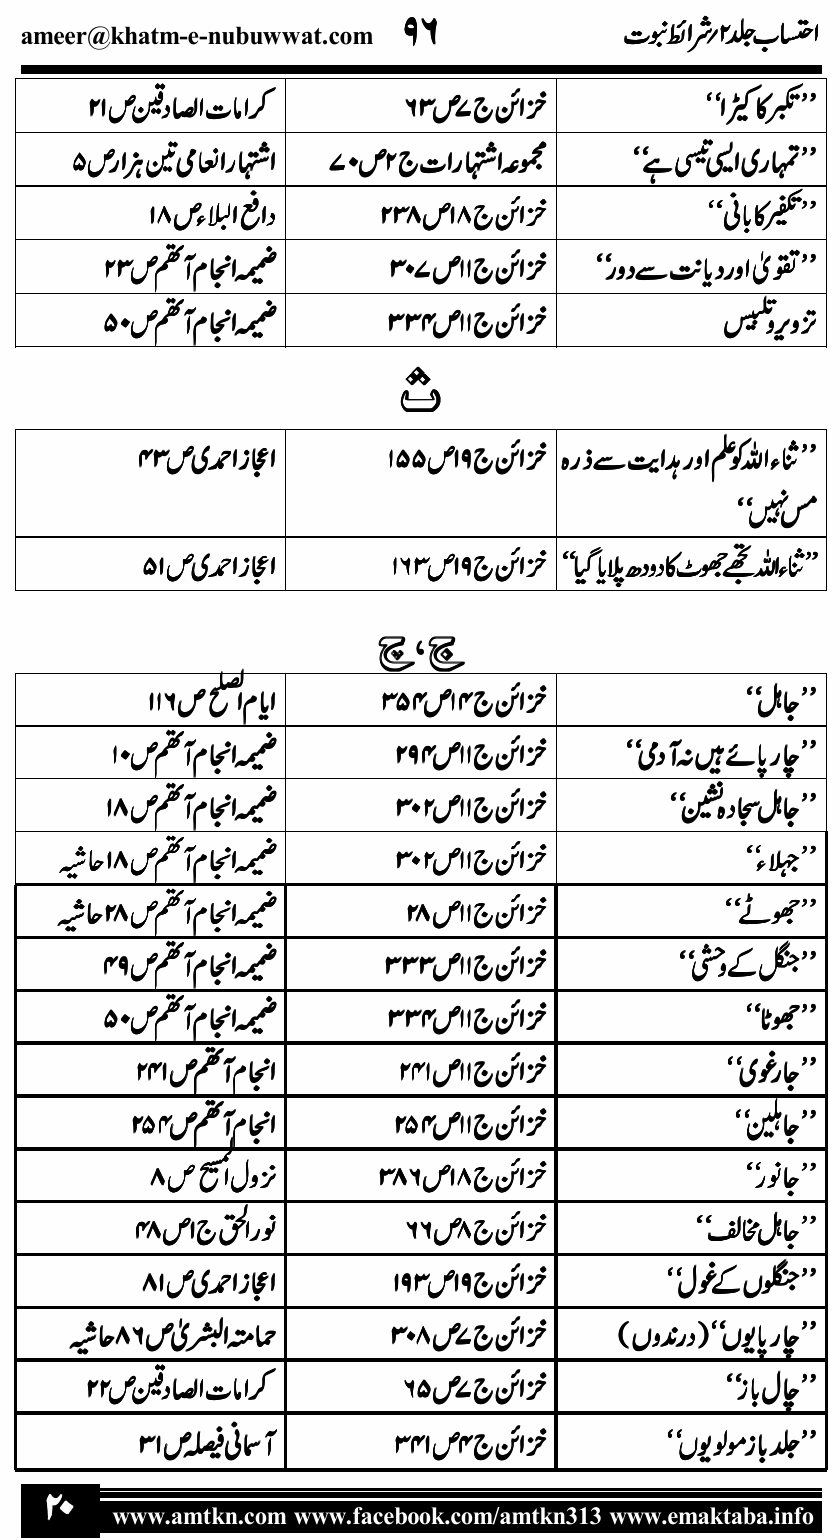 احتساب جلد۲؍شرائط نبوت ۹۶ ameer@khatm-e-nubuwwat.com
’’تکبر کا کیڑا‘‘ خزائن ج۷ص۶۳ کرامات الصادقین ص۲۱
’’تمہاری ایسی تیسی ہے‘‘ مجموعہ اشتہارات ج۲ص۷۰ اشتہار انعامی تین ہزار ص۵
’’تکفیر کا بانی‘‘ خزائن ج۱۸ص۲۳۸ دافع البلاء ص۱۸
’’تقویٰ اور دیانت سے دور‘‘ خزائن ج۱۱ص۳۰۷ ضمیمہ انجام آتھم ص۲۳
تزویر و تلبیس خزائن ج۱۱ص۳۳۴ ضمیمہ انجام آتھم ص۵۰
ث
’’ثناء اللہ کو علم اور ہدایت سے ذرہ خزائن ج۱۹ص۱۵۵ اعجاز احمدی ص۴۳
مس نہیں‘‘
’’ثناء اللہ تجھے جھوٹ کا دودھ پلایا گیا‘‘ خزائن ج۱۹ص۱۶۳ اعجاز احمدی ص۵۱
ج، چ
’’جاہل‘‘ خزائن ج۱۴ص۳۵۴ ایام الصلح ص۱۱۶
’’چارپائے ہیں نہ آدمی‘‘ خزائن ج۱۱ص۲۹۴ ضمیمہ انجام آتھم ص۱۰
’’جاہل سجادہ نشین‘‘ خزائن ج۱۱ص۳۰۲ ضمیمہ انجام آتھم ص۱۸
’’جہلاء‘‘ خزائن ج۱۱ص۳۰۲ ضمیمہ انجام آتھم ص۱۸ حاشیہ
’’جھوٹے‘‘ خزائن ج۱۱ص۲۸ ضمیمہ انجام آتھم ص۲۸ حاشیہ
’’جنگل کے وحشی‘‘ خزائن ج۱۱ص۳۳۳ ضمیمہ انجام آتھم ص۴۹
’’جھوٹا‘‘ خزائن ج۱۱ص۳۳۴ ضمیمہ انجام آتھم ص۵۰
’’جارغوی‘‘ خزائن ج۱۱ص۲۴۱ انجام آتھم ص۲۴۱
’’جاہلین‘‘ خزائن ج۱۱ص۲۵۴ انجام آتھم ص۲۵۴
’’جانور‘‘ خزائن ج۱۸ص۳۸۶ نزول المسیح ص۸
’’جاہل مخالف‘‘ خزائن ج۸ص۶۶ نور الحق ج۱ص۴۸
’’جنگلوں کے غول‘‘ خزائن ج۱۹ص۱۹۳ اعجاز احمدی ص۸۱
’’چارپایوں‘‘ (درندوں) خزائن ج۷ص۳۰۸ حمامتہ البشریٰ ص۸۶ حاشیہ
’’چال باز‘‘ خزائن ج۷ص۶۵ کرامات الصادقین ص۲۲
’’جلد باز مولویوں‘‘ خزائن ج۴ص۳۴۱ آسمانی فیصلہ ص۳۱
۲۰ www.amtkn.com www.facebook.com/amtkn313 www.emaktaba.info